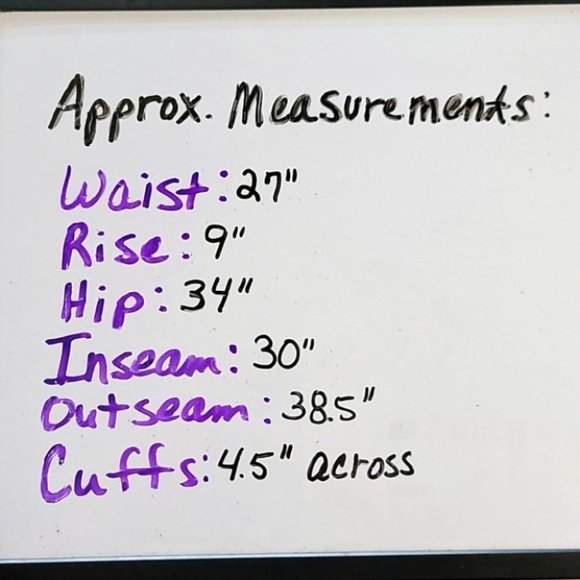 Approx. Measurements:
Waist: 27"
Rise: 9"
Hip: 34"
Inseam: 30"
Outseam: 38.5"
Cuffs: 4.5" across